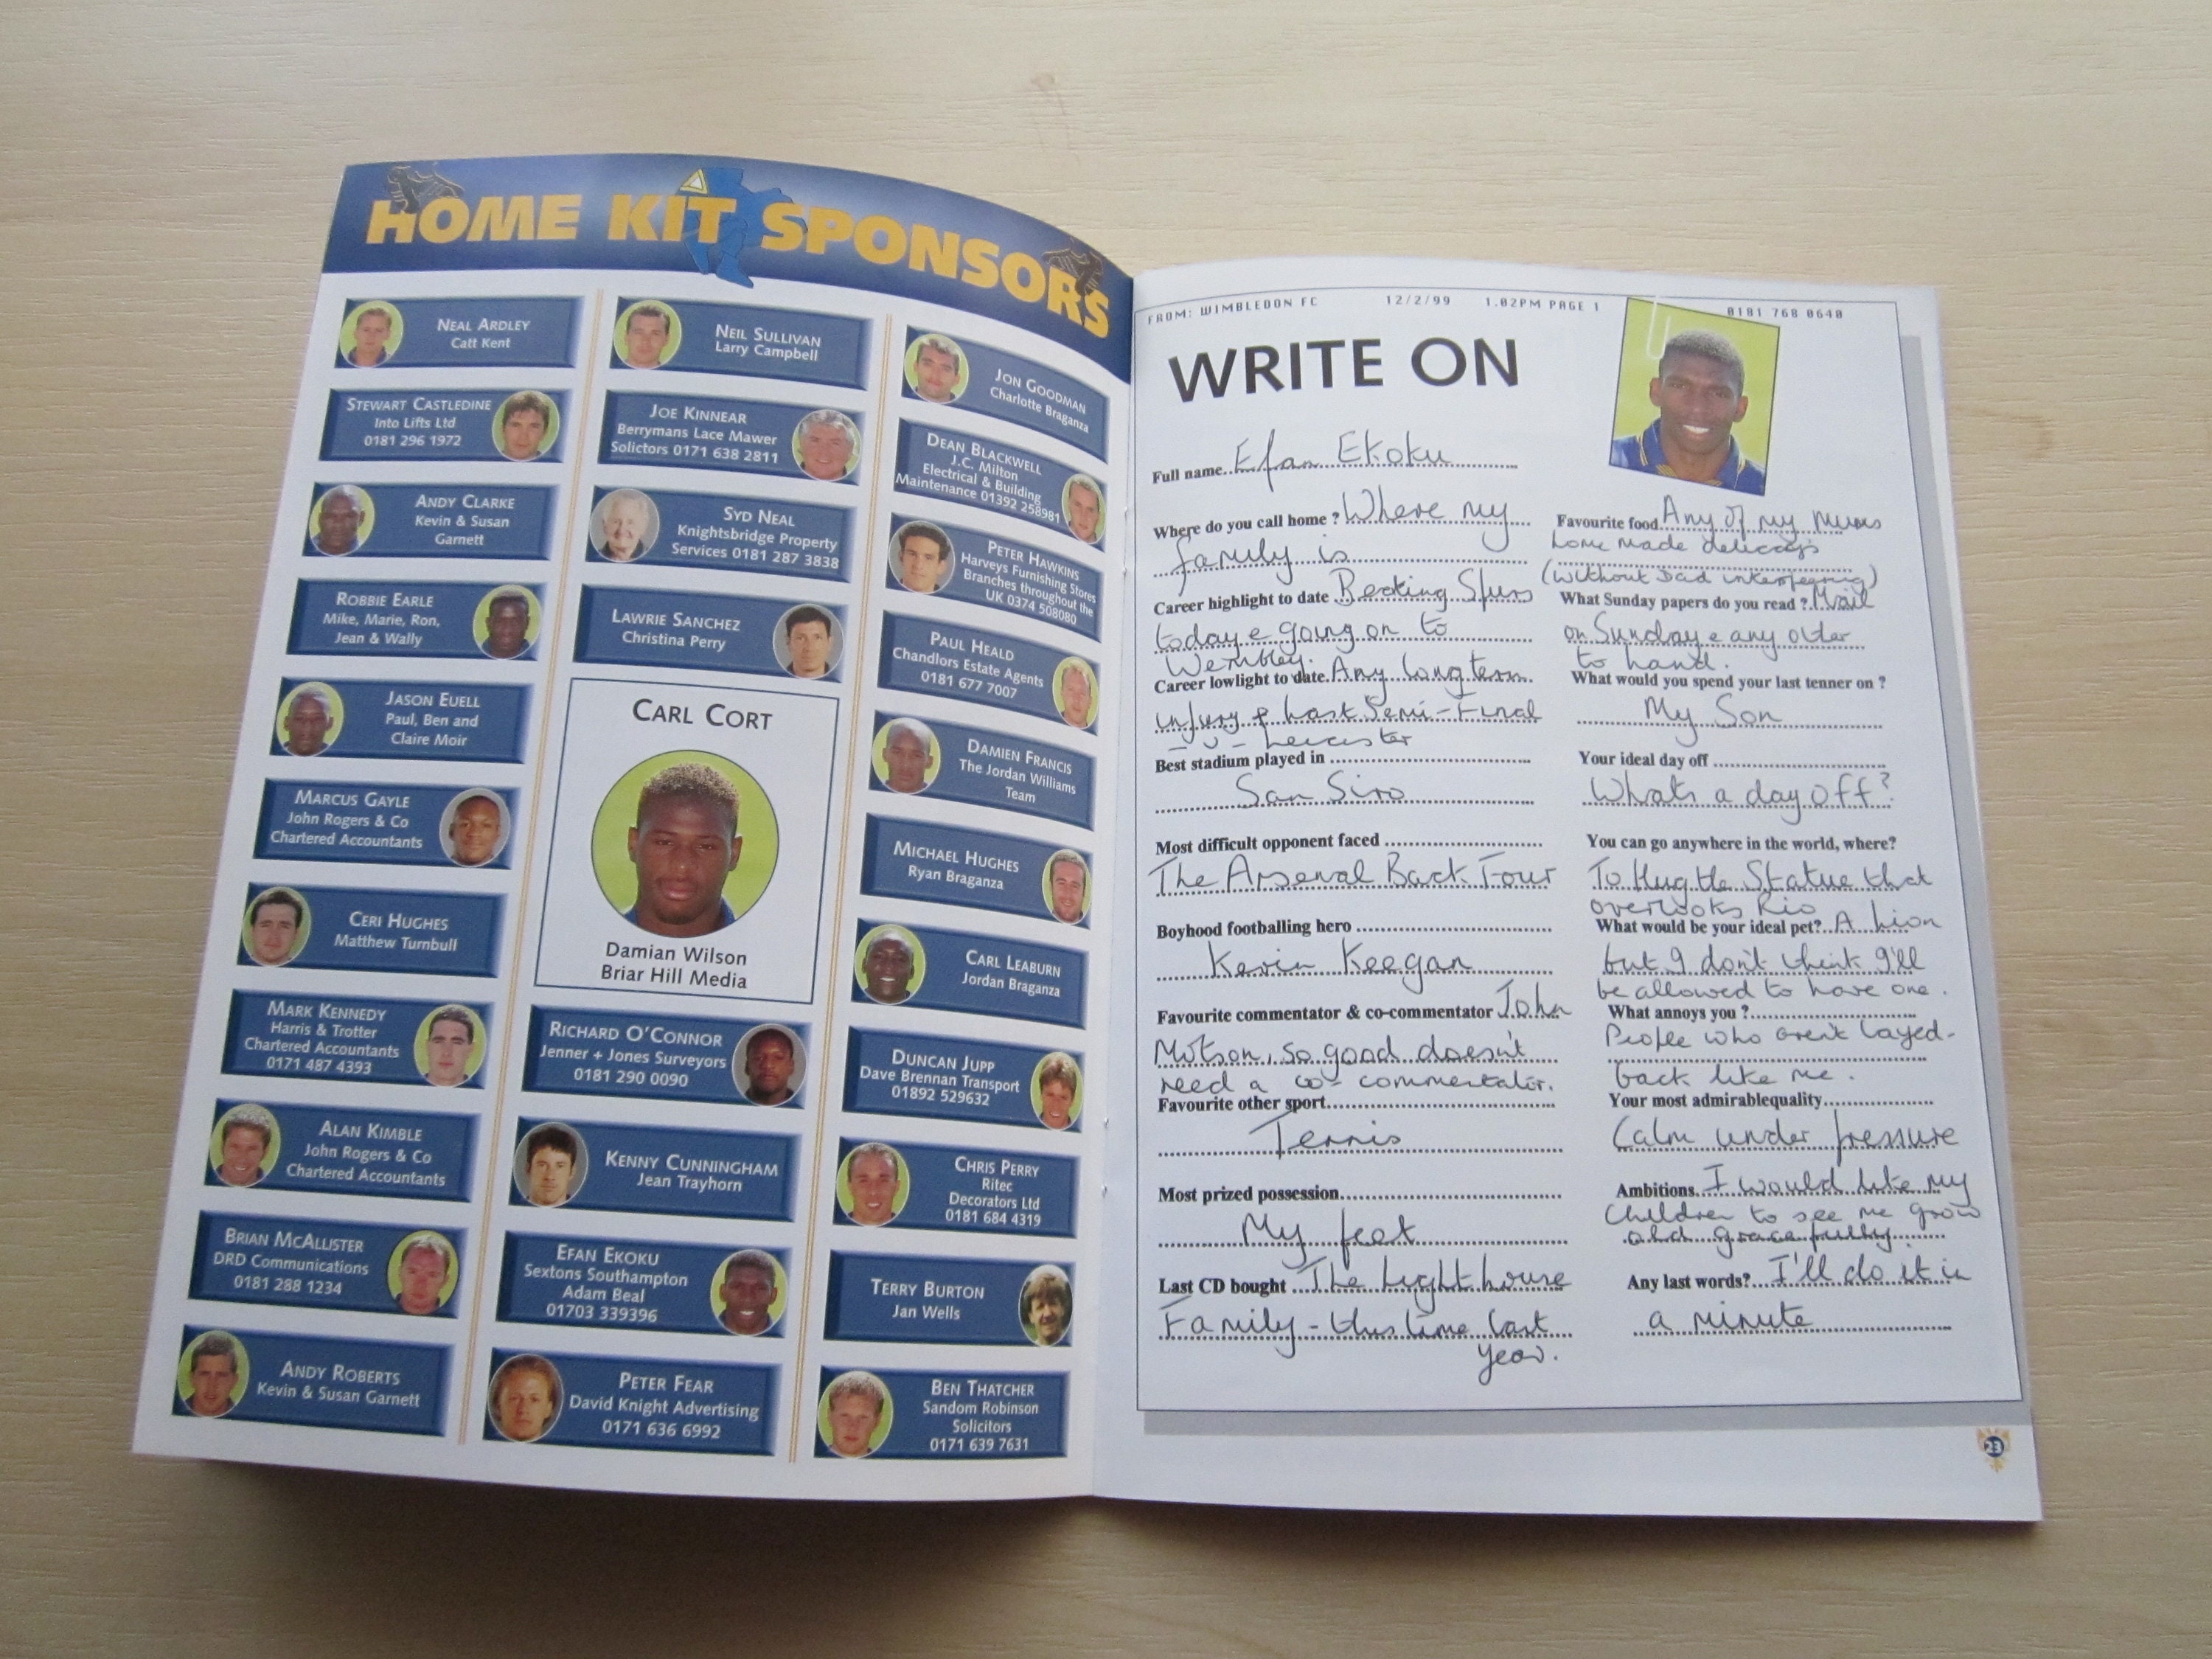 HOME KIT SPONSORS
NEAL ARDLEY
Catt Kent
STEWART CASTLEDINE
Into Lifts Ltd
0181 296 1972
ANDY CLARKE
Kevin & Susan
Garnett
ROBBIE EARLE
Mike, Marie, Ron,
Jean & Wally
JASON EUELL
Paul, Ben and
Claire Moir
MARCUS GAYLE
John Rogers & Co
Chartered Accountants
CERI HUGHES
Matthew Turnbull
MARK KENNEDY
Harris & Trotter
Chartered Accountants
0171 487 4393
ALAN KIMBLE
John Rogers & Co
Chartered Accountants
BRIAN MCALLISTER
DRD Communications
0181 288 1234
ANDY ROBERTS
Kevin & Susan Garnett
NEIL SULLIVAN
Larry Campbell
JOE KINNEAR
Berrymans Lace Mawer
Solictors 0171 638 2811
SYD NEAL
Knightsbridge Property
Services 0181 287 3838
LAWRIE SANCHEZ
Christina Perry
CARL CORT
Damian Wilson
Briar Hill Media
RICHARD O'CONNOR
Jenner + Jones Surveyors
0181 290 0090
KENNY CUNNINGHAM
Jean Trayhorn
EFAN EKOKU
Sextons Southampton
Adam Beal
01703 339396
PETER FEAR
David Knight Advertising
0171 636 6992
JON GOODMAN
Charlotte Braganza
DEAN BLACKWELL
J.C. Milton
Electrical & Building
Maintenance 01392 258981
PETER HAWKINS
Harveys Furnishing Stores
Branches throughout the
UK 0374 508080
PAUL HEALD
Chandlors Estate Agents
0181 677 7007
DAMIEN FRANCIS
The Jordan Williams
Team
MICHAEL HUGHES
Ryan Braganza
CARL LEABURN
Jordan Braganza
DUNCAN JUPP
Dave Brennan Transport
01892 529632
CHRIS PERRY
Ritec
Decorators Ltd
0181 684 4319
TERRY BURTON
Jan Wells
BEN THATCHER
Sandom Robinson
Solicitors
0171 639 7631
FROM: WIMBLEDON FC 12/2/99 1.02PM PAGE 1 0181 768 0640
WRITE ON
Full name Efan Ekoku
Where do you call home ? Where my
family is
Career highlight to date Beating Spurs
today & going on to
Wembley.
Career lowlight to date. Any long term
injury & Last Semi-Final
- v - Leicester
Best stadium played in
San Siro
Most difficult opponent faced
The Arsenal Back Four
Boyhood footballing hero
Kevin Keegan
Favourite commentator & co-commentator John
Motson, so good doesn't
need a co-commentator.
Favourite other sport
Tennis
Most prized possession
My feet
Last CD bought The Lighthouse
Family - this time last
year.
Favourite food Any of my Mums
home made
(without Dad interfearing)
What Sunday papers do you read ? Mail
on Sunday & any other
to hand.
What would you spend your last tenner on ?
My Son
Your ideal day off
Whats a day off?
You can go anywhere in the world, where?
To Hug the Statue that
overlooks Rio
What would be your ideal pet? A Lion
but I don't think I'll
be allowed to have one.
What annoys you ?
People who aren't layed-
back like me.
Your most admirablequality
Calm under pressure
Ambitions I would like my
children to see me grow
old gracefully.
Any last words? I'll do it in
a minute
23